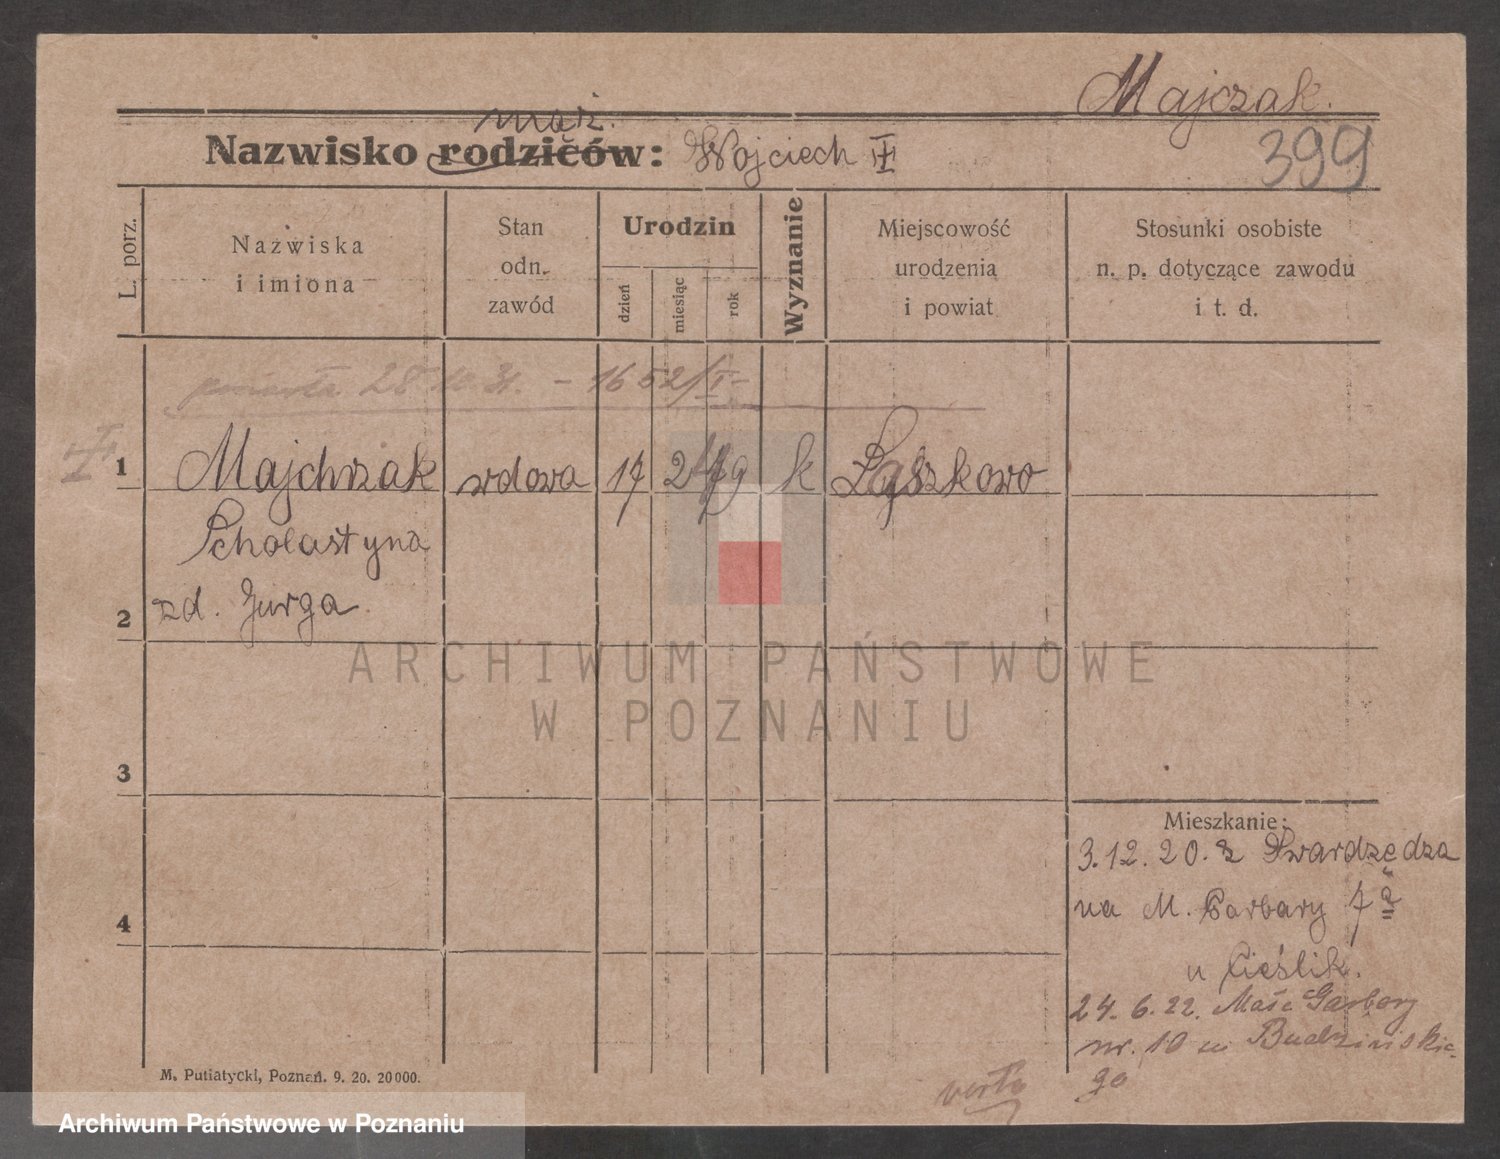 Majczak.
mąż.
Nazwisko rodziców: Wojciech
399
L. porz.
Nazwiska
i imiona
Stan
odn.
zawód
Urodzin
dzień
miesiąc
rok
Wyznanie
Miejscowość
urodzenia
i powiat
Stosunki osobiste
n. p. dotyczące zawodu
i t. d.
28 10 31. - 1652/I-
1 Majchrzak wdowa 17 2 79 k Ląszkowo
Scholastyna
2 zd. Jurga
3
Mieszkanie:
3.12.20. z Swardzędza
4 na M. Garbary 7 a
u Cieślik.
24.6.22. Małe Garbary
nr. 10 u Budzińskie-
go
verte
M. Putiatycki, Poznań. 9. 20. 20000.
ARCHIWUM PAŃSTWOWE
W POZNANIU
Archiwum Państwowe w Poznaniu